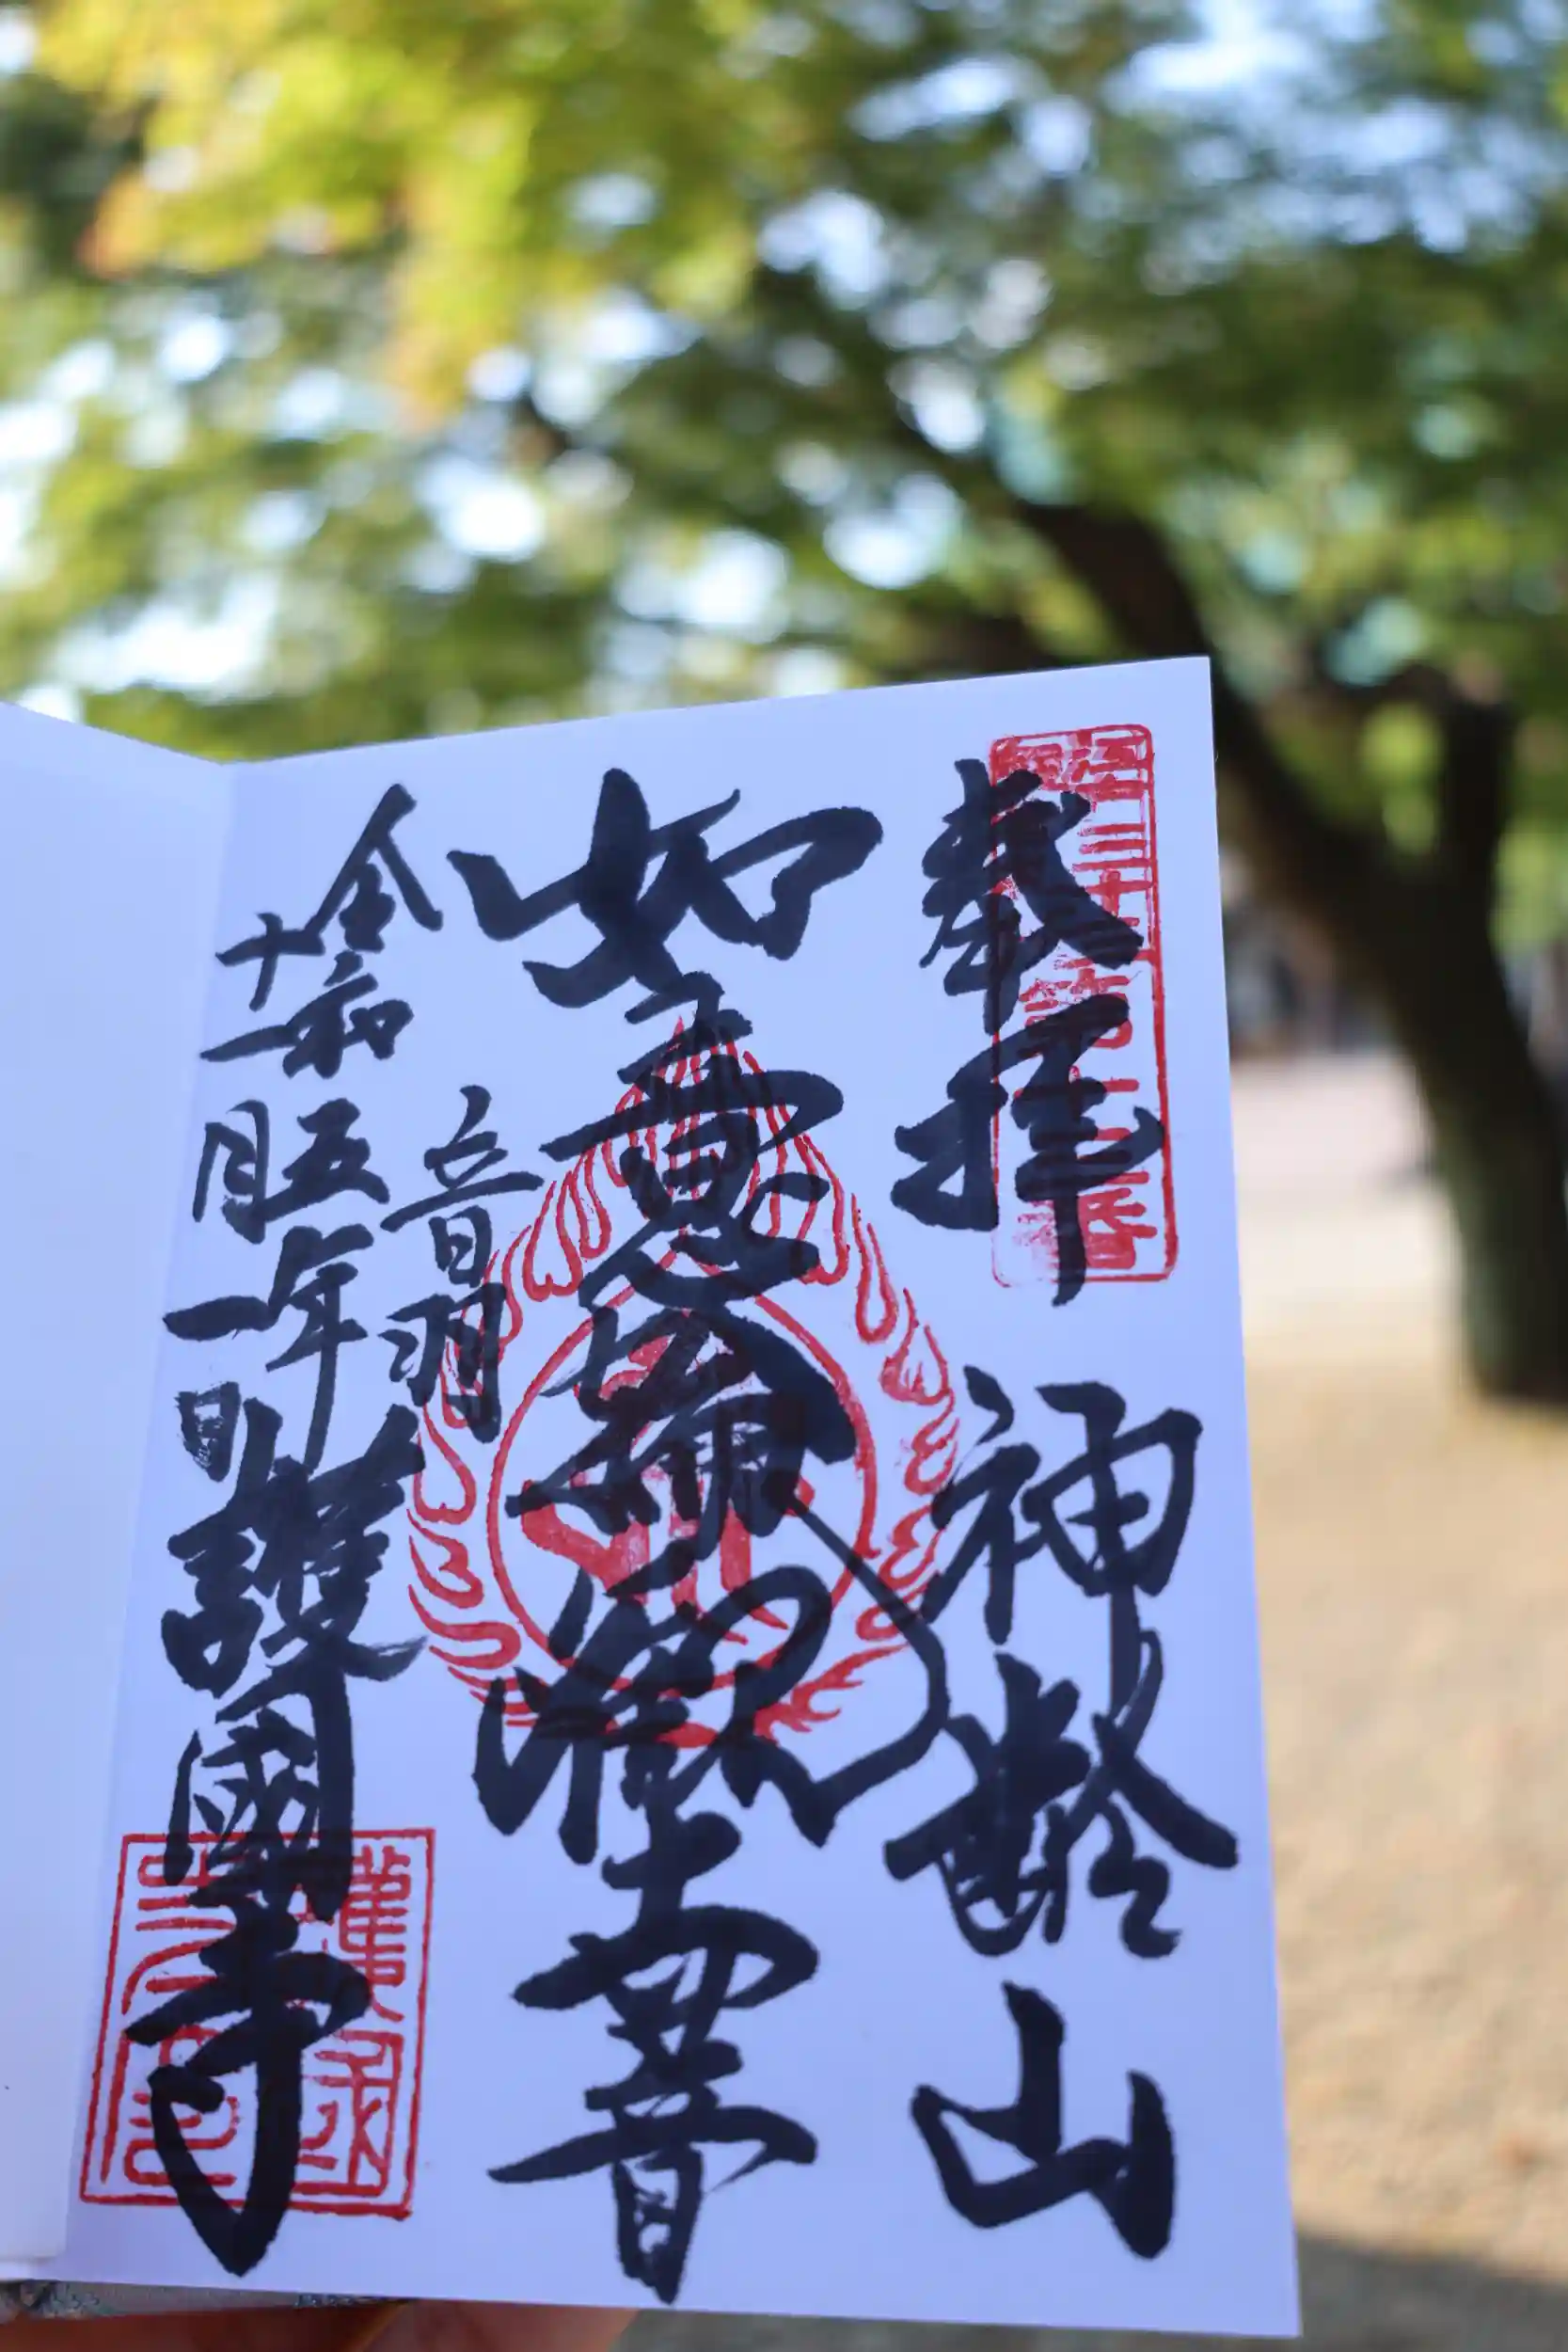 奉拝
神齢山
如意輪観世音
音羽
護國寺
令和五年
十一月一日